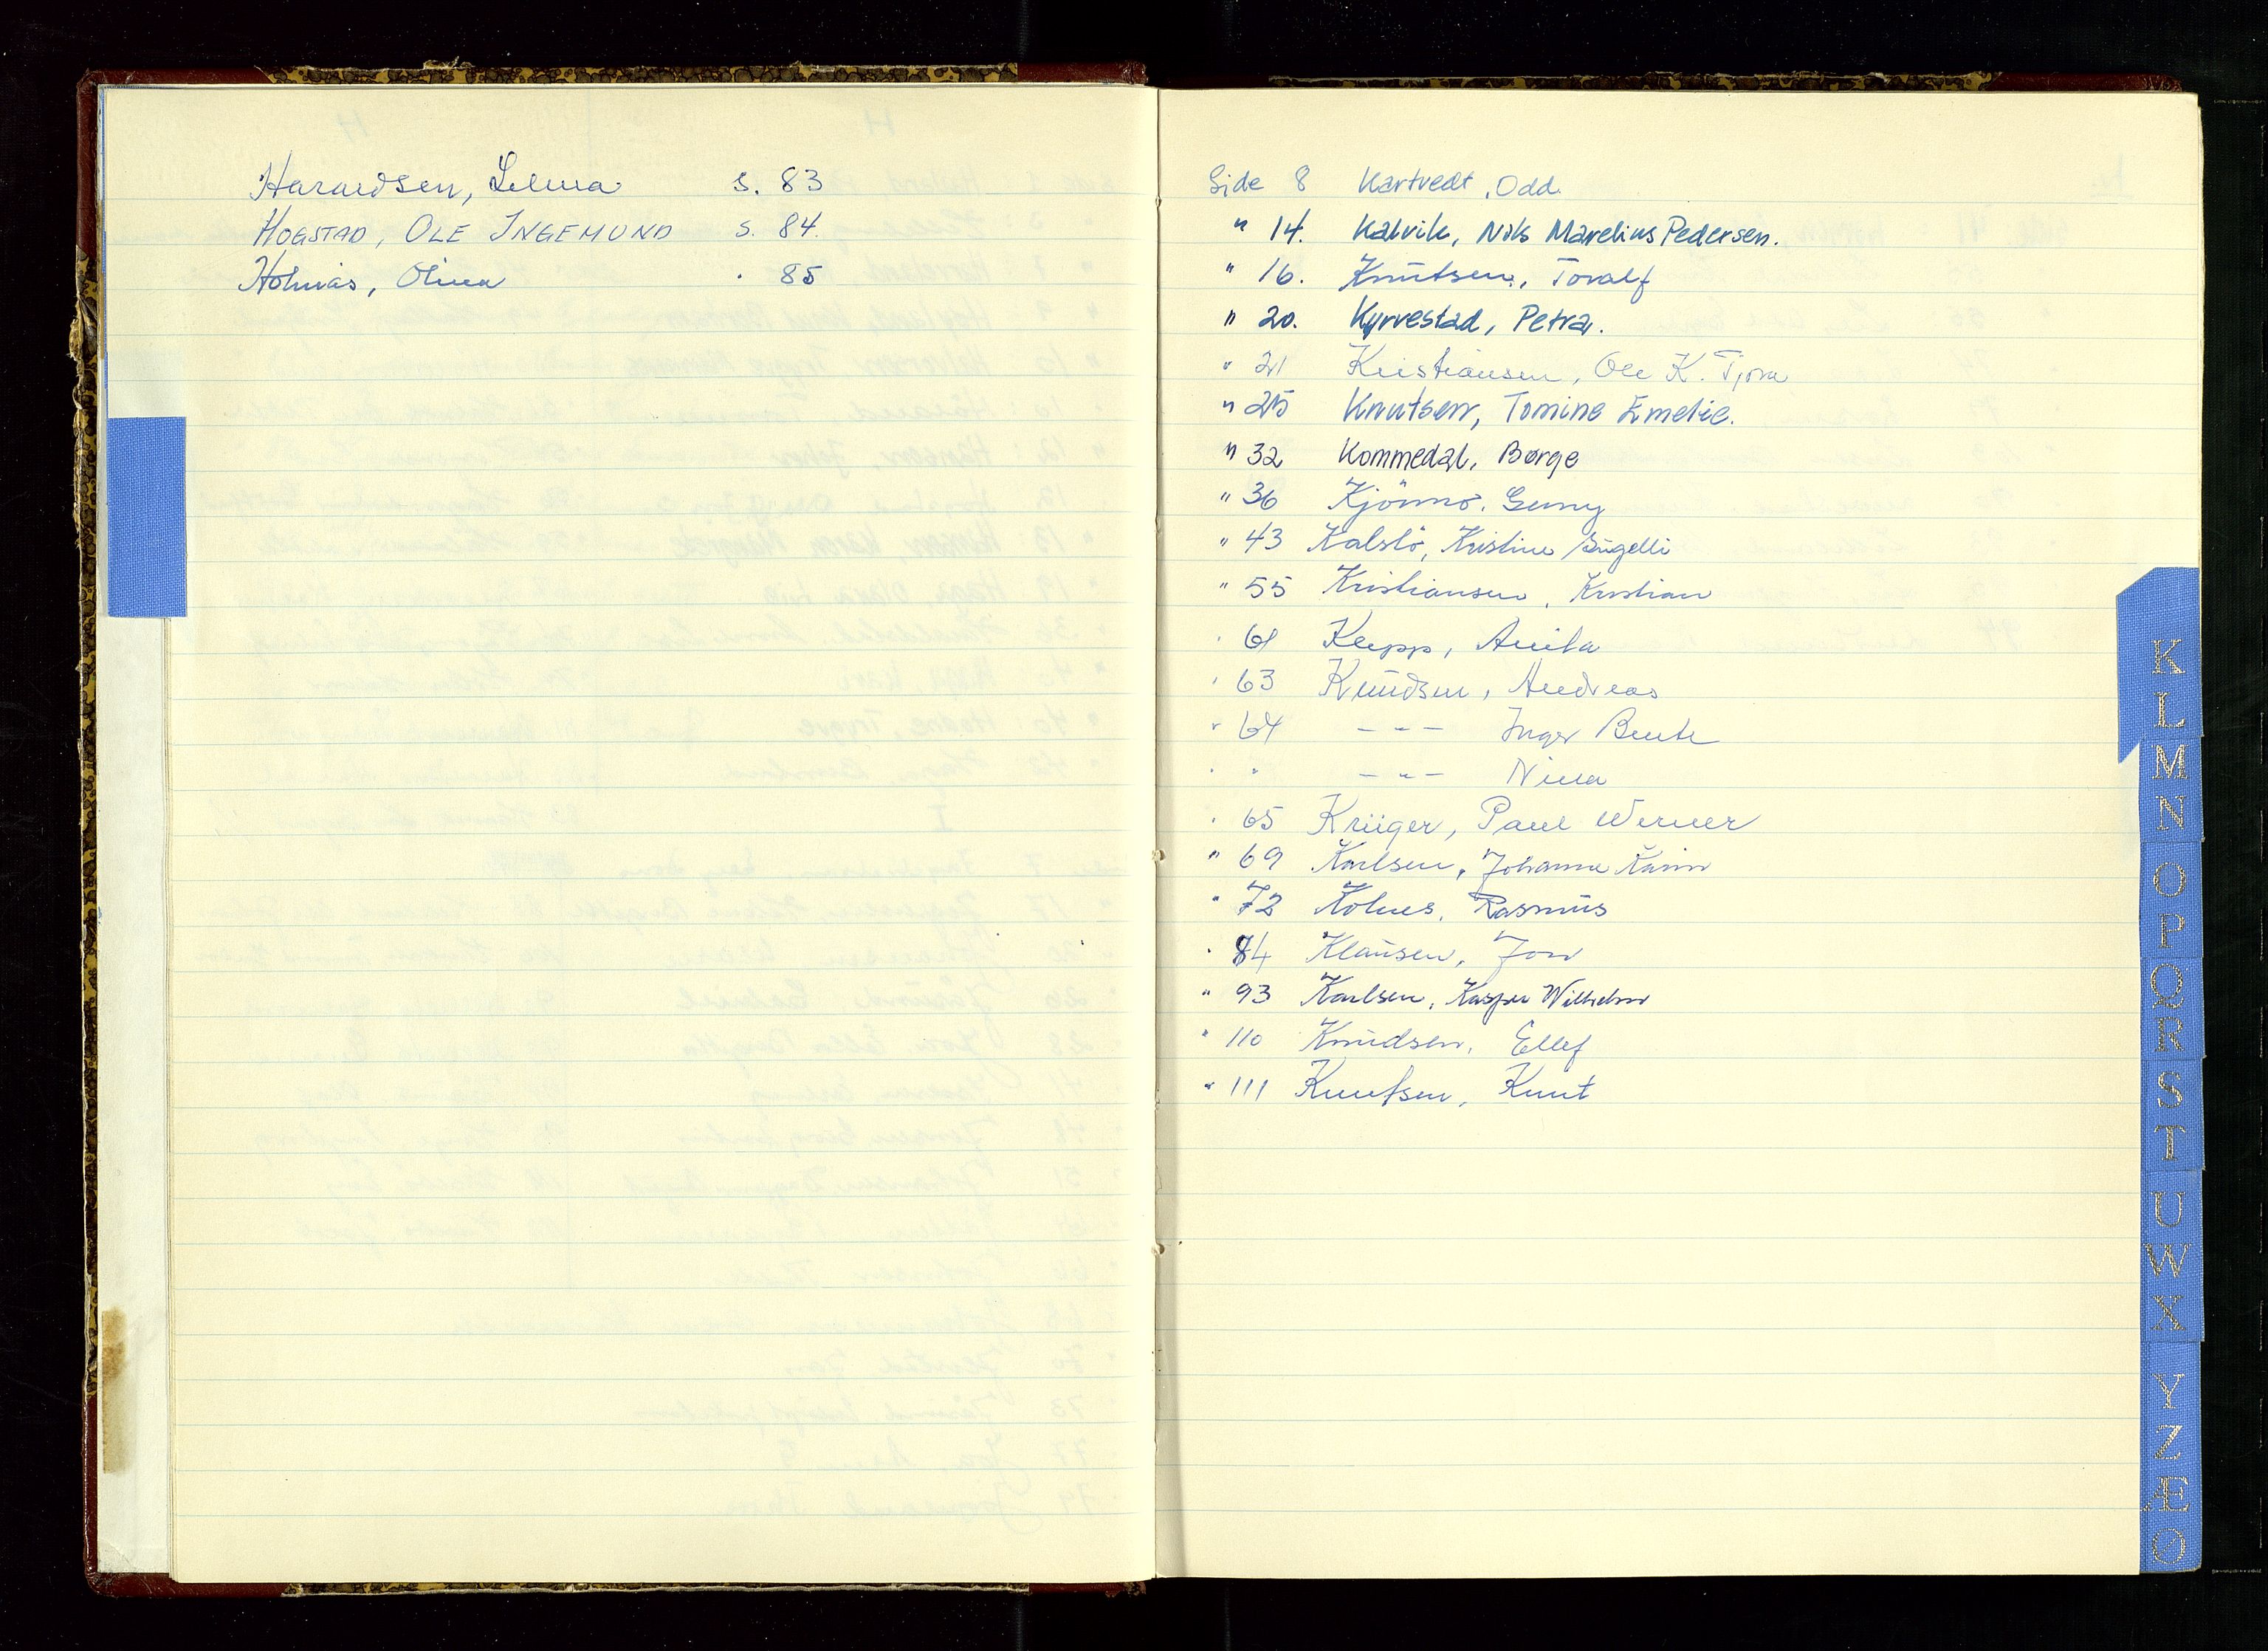 Haraldsen, Selma s. 83
HOGSTAD, OLE INGEMUND s. 84.
Holmås, Olina . 85
Side 8 Kartvedt, Odd.
" 14. Kalvik, Nils Marelius Pedersen.
" 16. Knutsen, Toralf
" 20. Kyrvestad, Petra.
" 21 Kristiansen, Ole K. Tjora
" 25 Knutsen, Tomine Emelie.
" 32 Kommedal, Børge
" 36 Kjönnö, Gunny
" 43 Kalstö, Kristine Engelli
" 55 Kristiansen, Kristian
" 61 Klepp, Anita
" 63 Knudsen, Andreas
" 64 - " - Inger Bente
" " - " - Nina
" 65 Krüger, Paul Werner
" 69 Karlsen, Johanne Karin
" 72 Kolnes, Rasmus
" 84 Klausen, Jon
" 93 Karlsen, Kasper Wilhelm
" 110 Knudsen, Ellef
" 111 Knutsen, Knut
K
L
M
N
O
P
Q
R
S
T
U
W
X
Y
Z
Æ
Ø